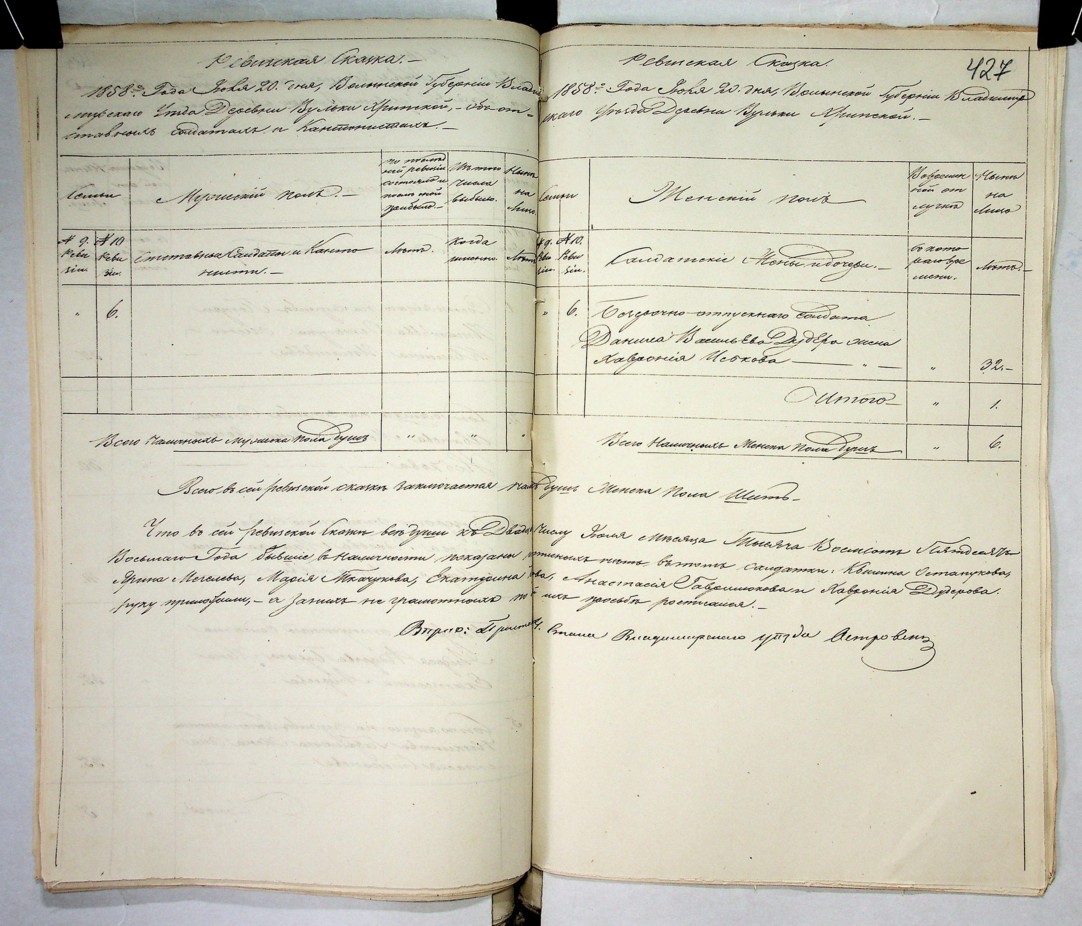 Ревизская Сказка.-
1858го Года Іюля 20. дня, Волынской Губерніи Влади
мірскаго Уѣзда Деревни Вульки Хрипской,- объ от-
ставныхъ солдатахъ и Кантонистахъ.-
Семьи
Мужескій полъ.-
По послѣд
ней ревизіи
состояло и
послѣ той
прибыло.-
Изъ того
числа
выбыло.
Нынѣ
на
Лицо.
№ 9.
Реви
зіи.
№ 10
Реви
зіи.
Отставные Солдаты и Канто
нисты.-
Лѣта.
Когда
именно.
Лѣта
„
6.
Всего наличныхъ мужеска пола душъ
„
„
„
427
Ревизская Сказка.
1858го Года Іюля 20. дня, Волынской Губерніи Владимір
скаго Уѣзда Деревни Вульки Хрипской.-
Семьи
Женскій полъ
Во временн
ной от
лучкѣ
Нынѣ
на
Лицо
№ 9.
Реви
зіи.
№ 10.
Реви
зіи.
Солдатскіе Жены и дочери.-
съ кото
раго вре
мени.
Лѣта.-
„
6.
Безсрочно-отпускнаго Солдата
Данила Васильева Дудера жена
Хавронія Исакова
„
32.-
Итого
„
1.
Всего Наличныхъ Женска пола душъ
„
6.
Всего въ сей ревизской сказкѣ заключается душъ Женска пола Шесть.-
Что въ сей ревизской Сказкѣ всѣ души къ Двад Числу Іюля Мѣсяца Тысяча Восмсотъ Пятдесятъ
Восьмаго Года бывшіе въ наличности показаны солдатки: Остапукова,
Ярина Марія Ткачукова, Екатерина Анастасія и Хавронія Дудерова.
руку приложили,- а за нихъ не грамотныхъ по ихъ прозьбѣ росписался.-
Вѣрно: Приставъ стана Владимірскаго уѣзда Островск